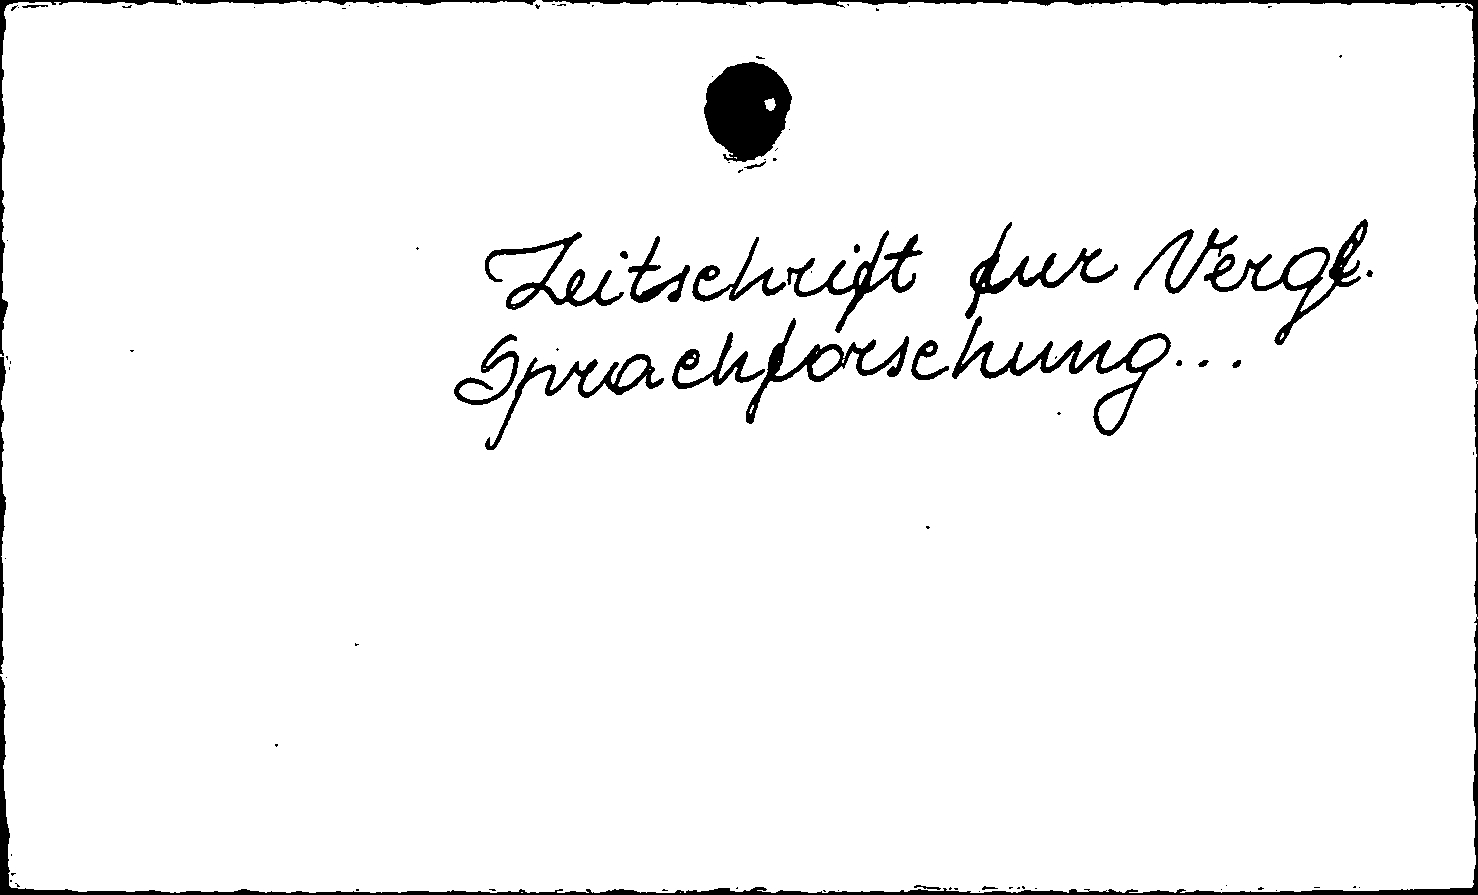 Zeitschrift fur Vergl.
Sprachforschung...